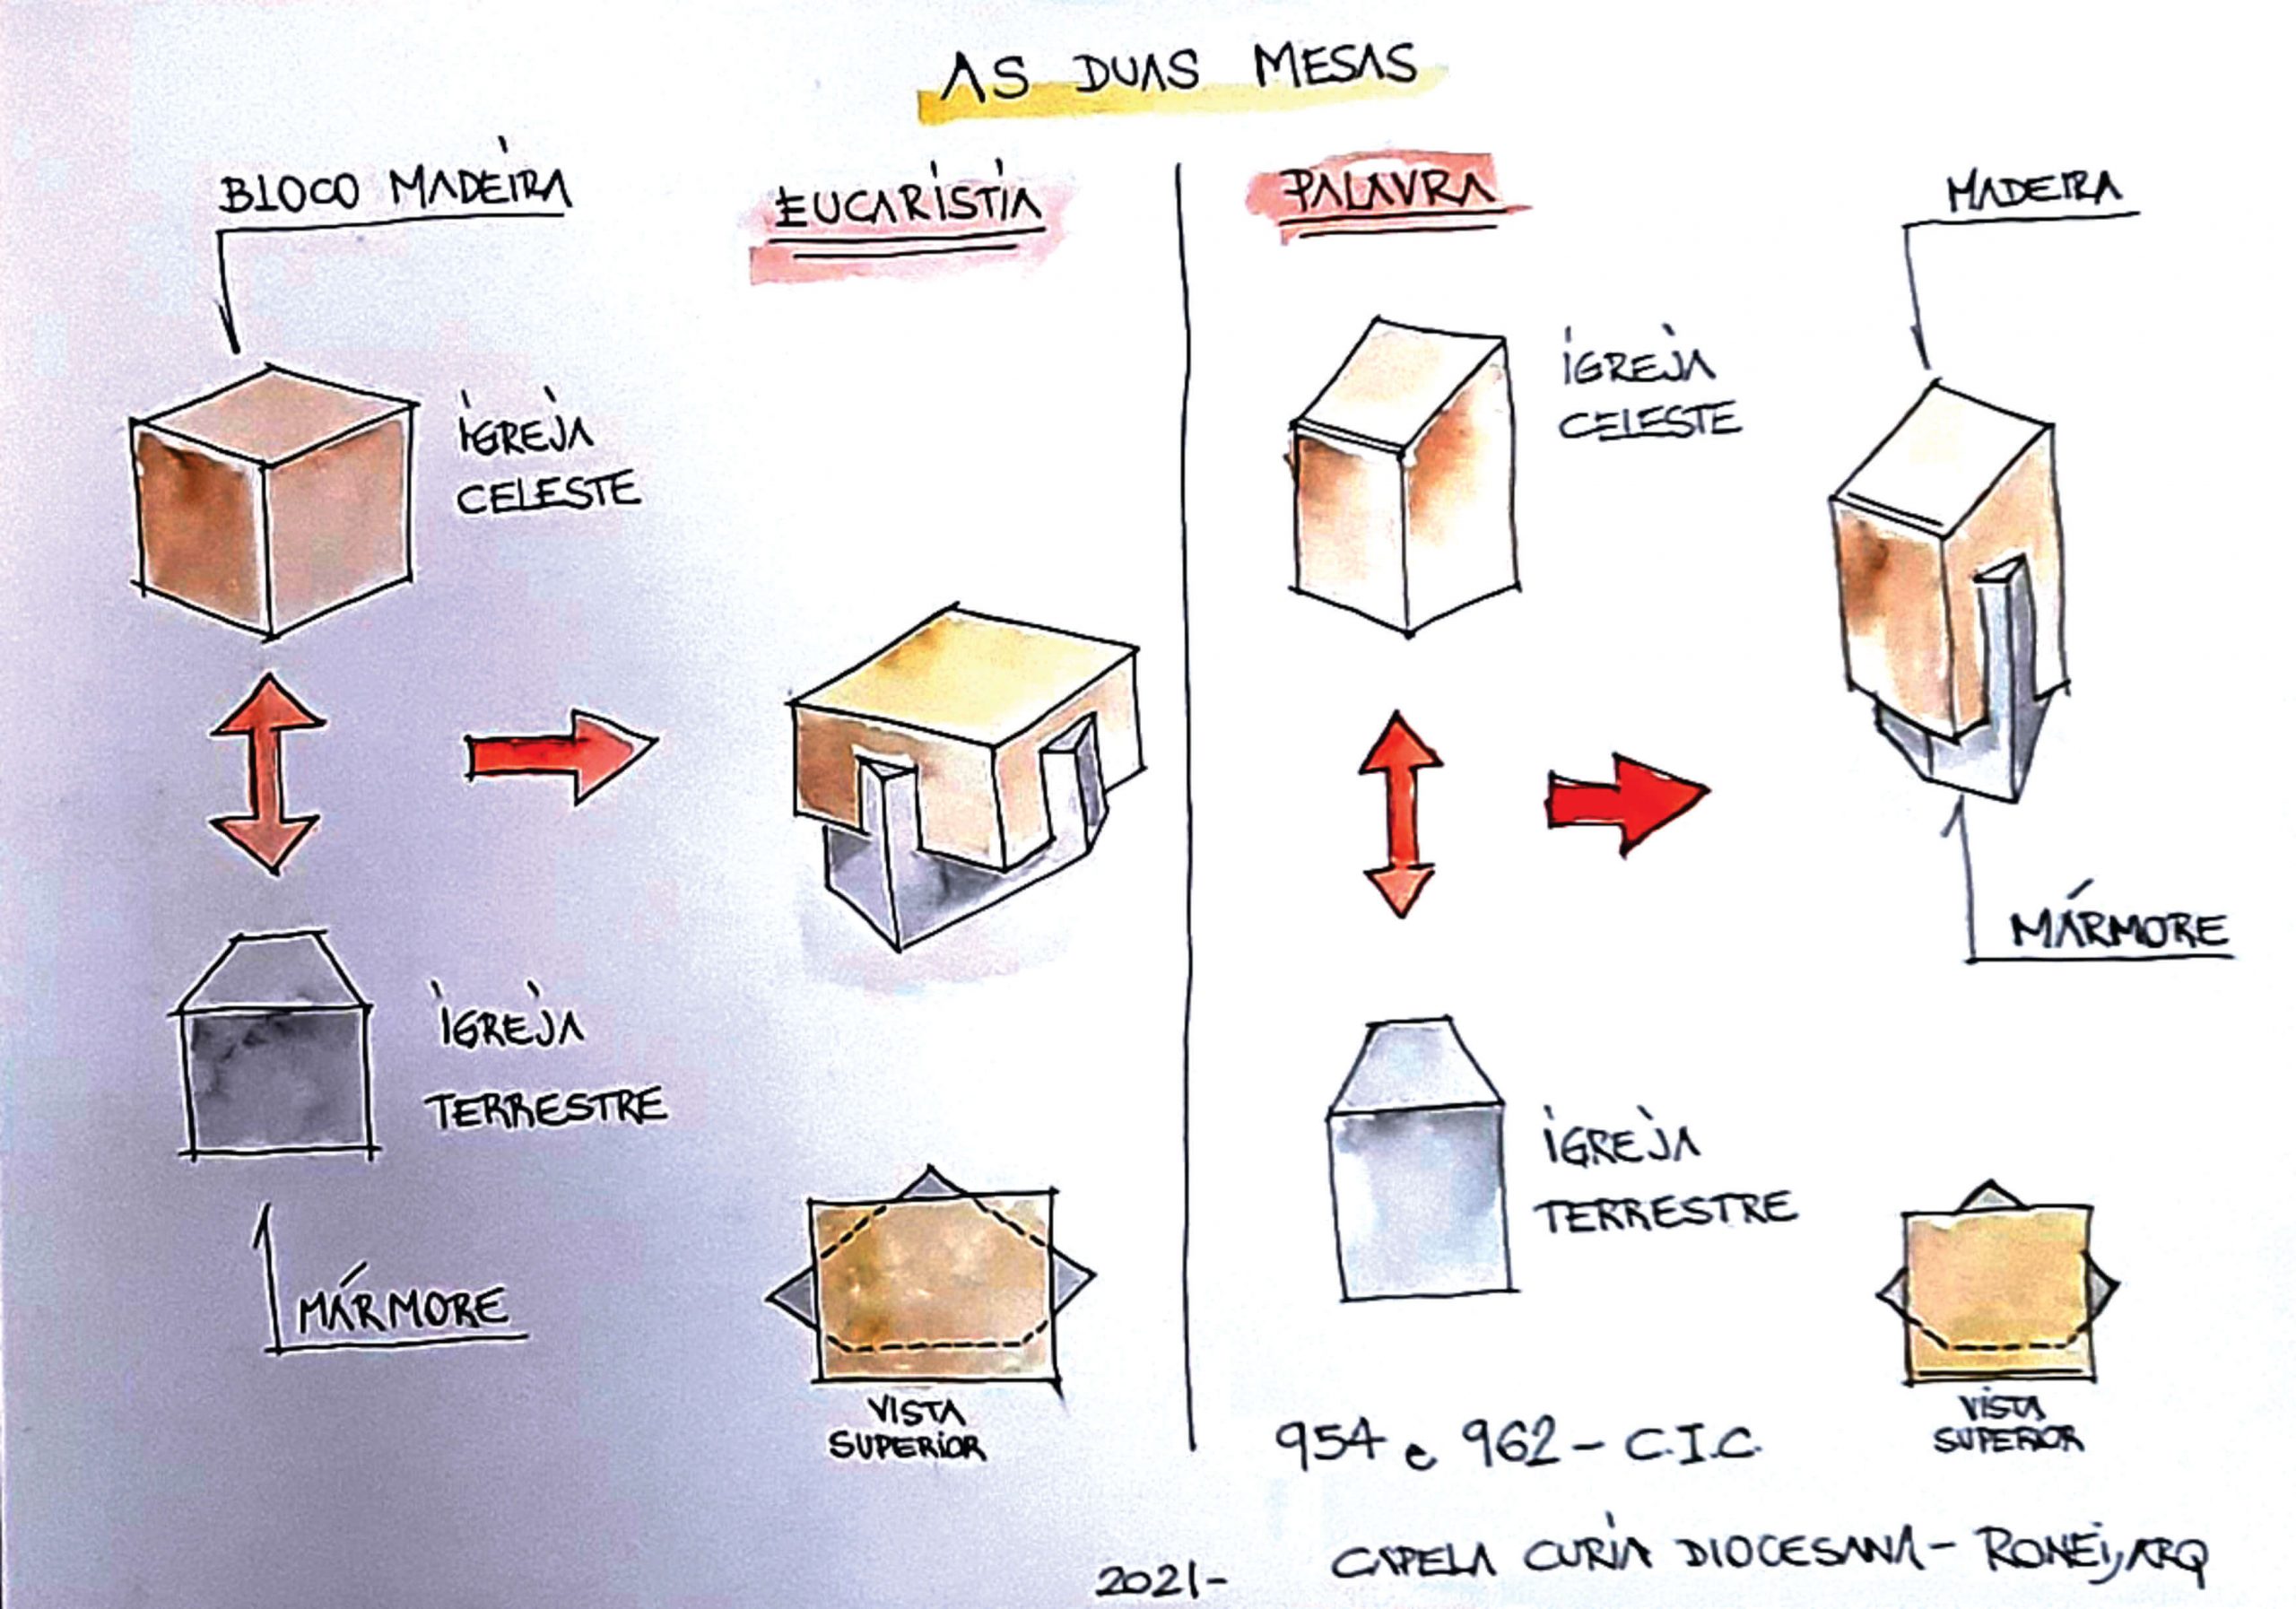 AS DUAS MESAS
BLOCO MADEIRA
EUCARISTIA
IGREJA
CELESTE
IGREJA
TERRESTRE
MÁRMORE
VISTA
SUPERIOR
PALAVRA
MADEIRA
IGREJA
CELESTE
MÁRMORE
IGREJA
TERRESTRE
VISTA
SUPERIOR
954 e 962 - C.I.C.
2021- CAPELA CURIA DIOCESANA - RONEI, ARQ